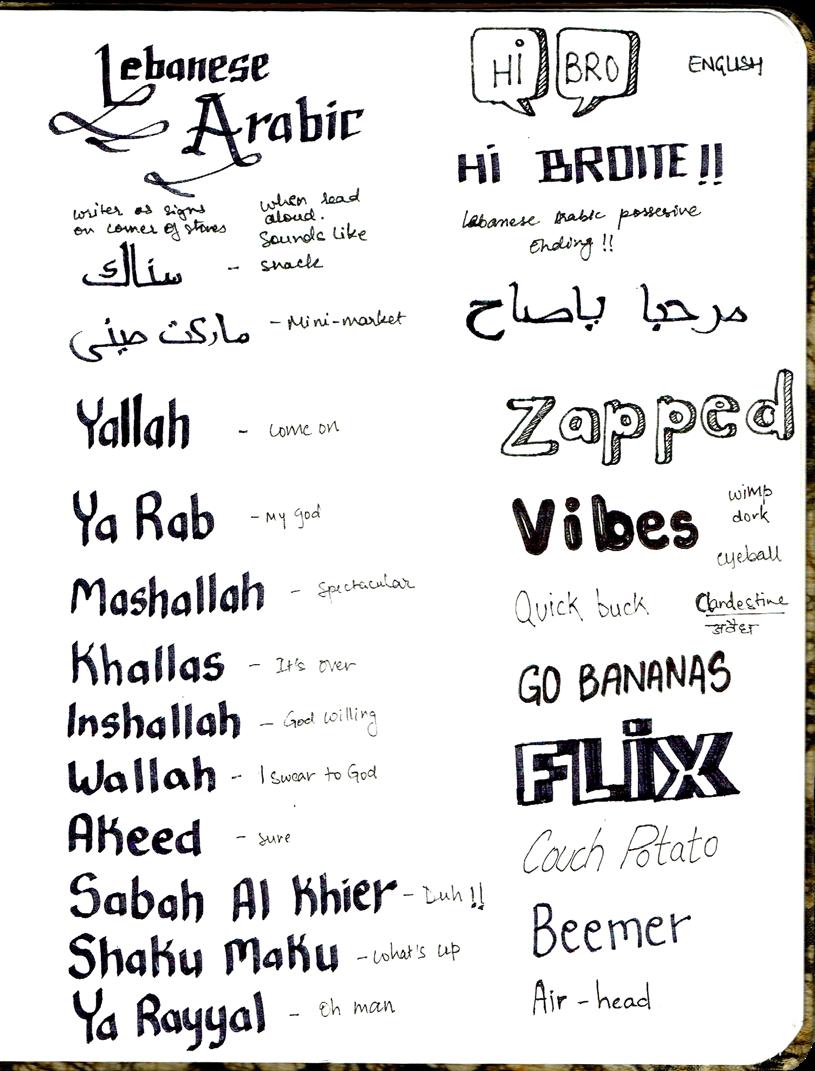 Lebanese
Arabic
writer as signs
on corner of stores
when read
aloud.
Sounds like
سناك - snack
ماركت ميني - Mini-market
Yallah - come on
Ya Rab - My god
Mashallah - Spectacular
Khallas - It's over
Inshallah - God willing
Wallah - I swear to God
Akeed - sure
Sabah Al Khier - Duh !!
Shaku Maku - what's up
Ya Rayyal - Oh man
Hi BRO
ENGLISH
Hi BROITE !!
Lebanese Arabic possesive
Ending !!
مرحبا ياصاح
Zapped
Vibes
wimp
dork
eyeball
Quick buck
Clandestine
अवैध
GO BANANAS
FLiX
Couch Potato
Beemer
Air-head